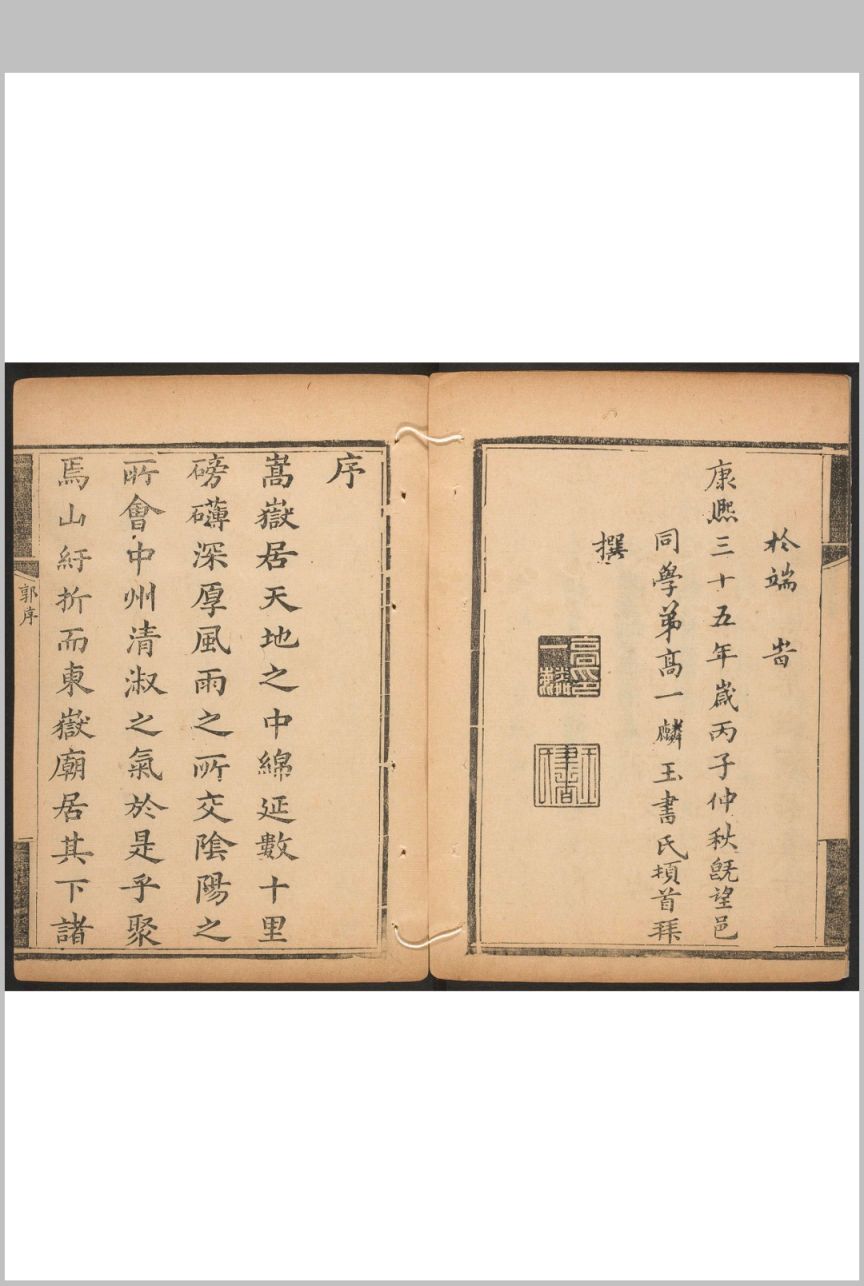 於端 旹
康熙三十五年歲丙子仲秋旣望邑
同學弟高一麟玉書氏頓首拜
撰
高一麟印
玉書
序
嵩嶽居天地之中綿延數十里
磅礴深厚風雨之所交陰陽之
所會中州清淑之氣於是乎聚
焉山紆折而東嶽廟居其下諸
郭序